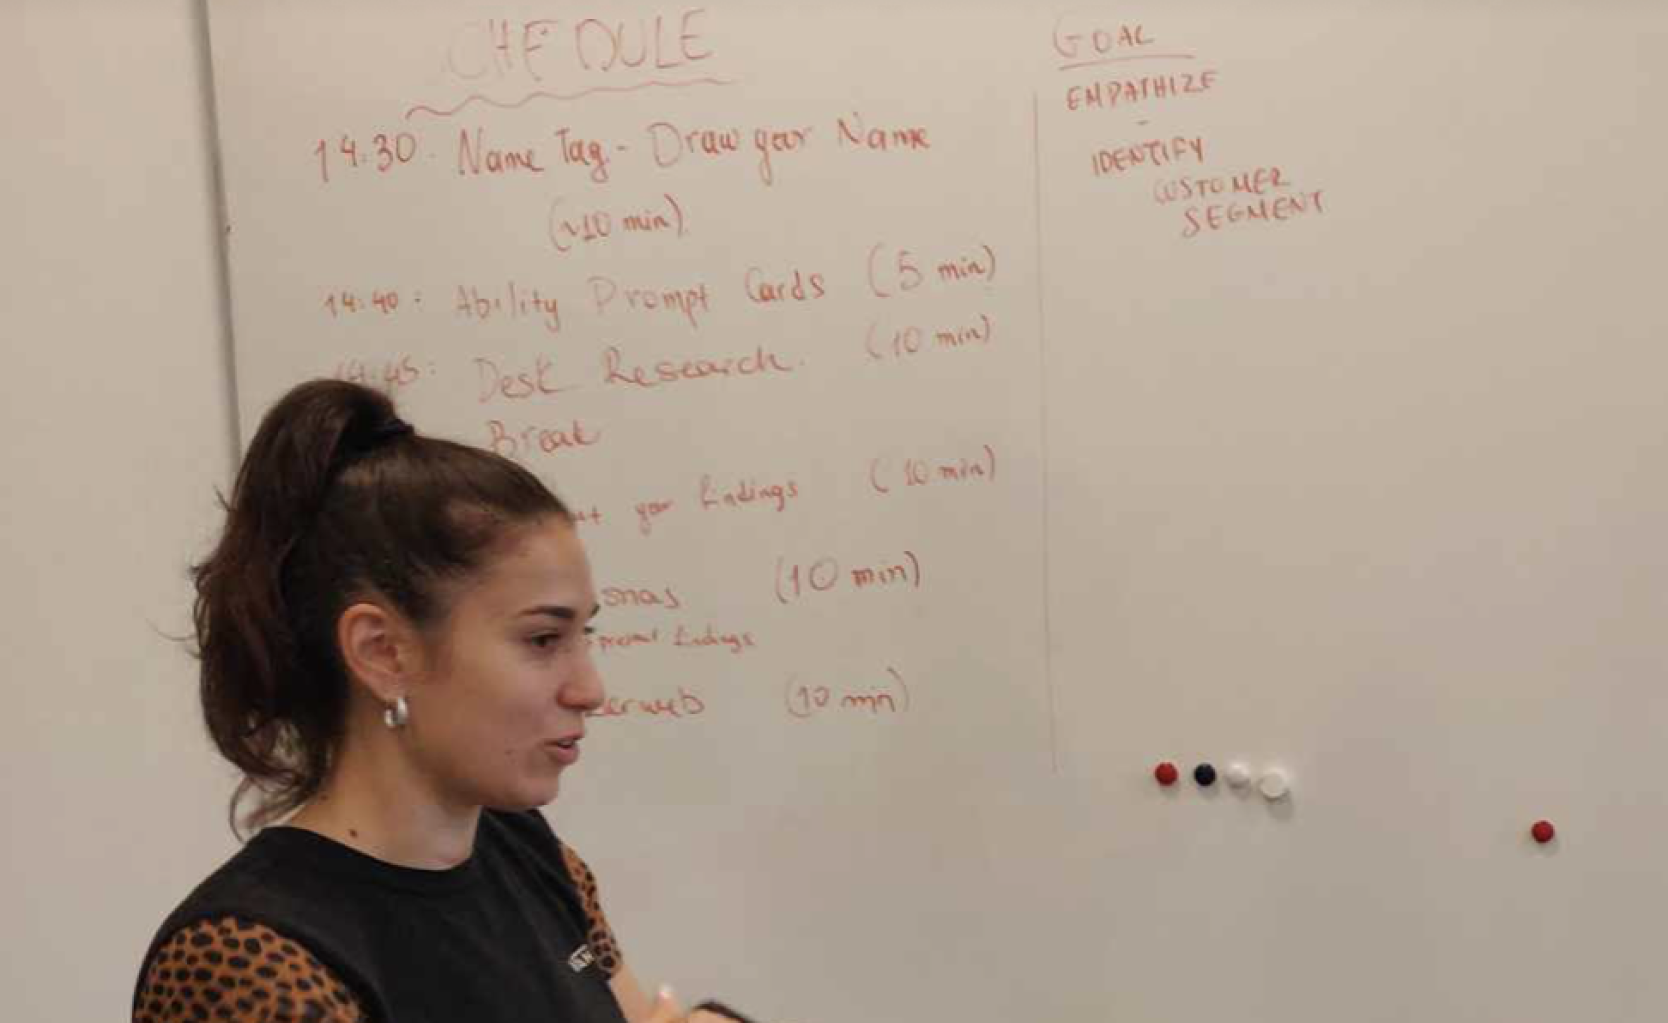 CHEDULE
14:30 Name Tag - Draw your Name
(~10 min)
14:40: Ability Prompt Cards (5 min)
14:45: Desk Research. (10 min)
Break
your findings (10 min)
snas (10 min)
present findings
(10 min)
GOAL
EMPATHIZE
-
IDENTIFY
CUSTOMER
SEGMENT